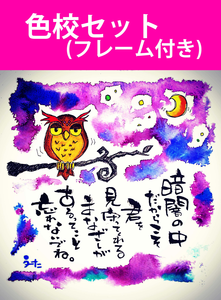 色校セット
(フレーム付き)
暗闇の中
だからこそ
君を
見守ってくれる
まなざしが
あるってこと
忘れないでね。